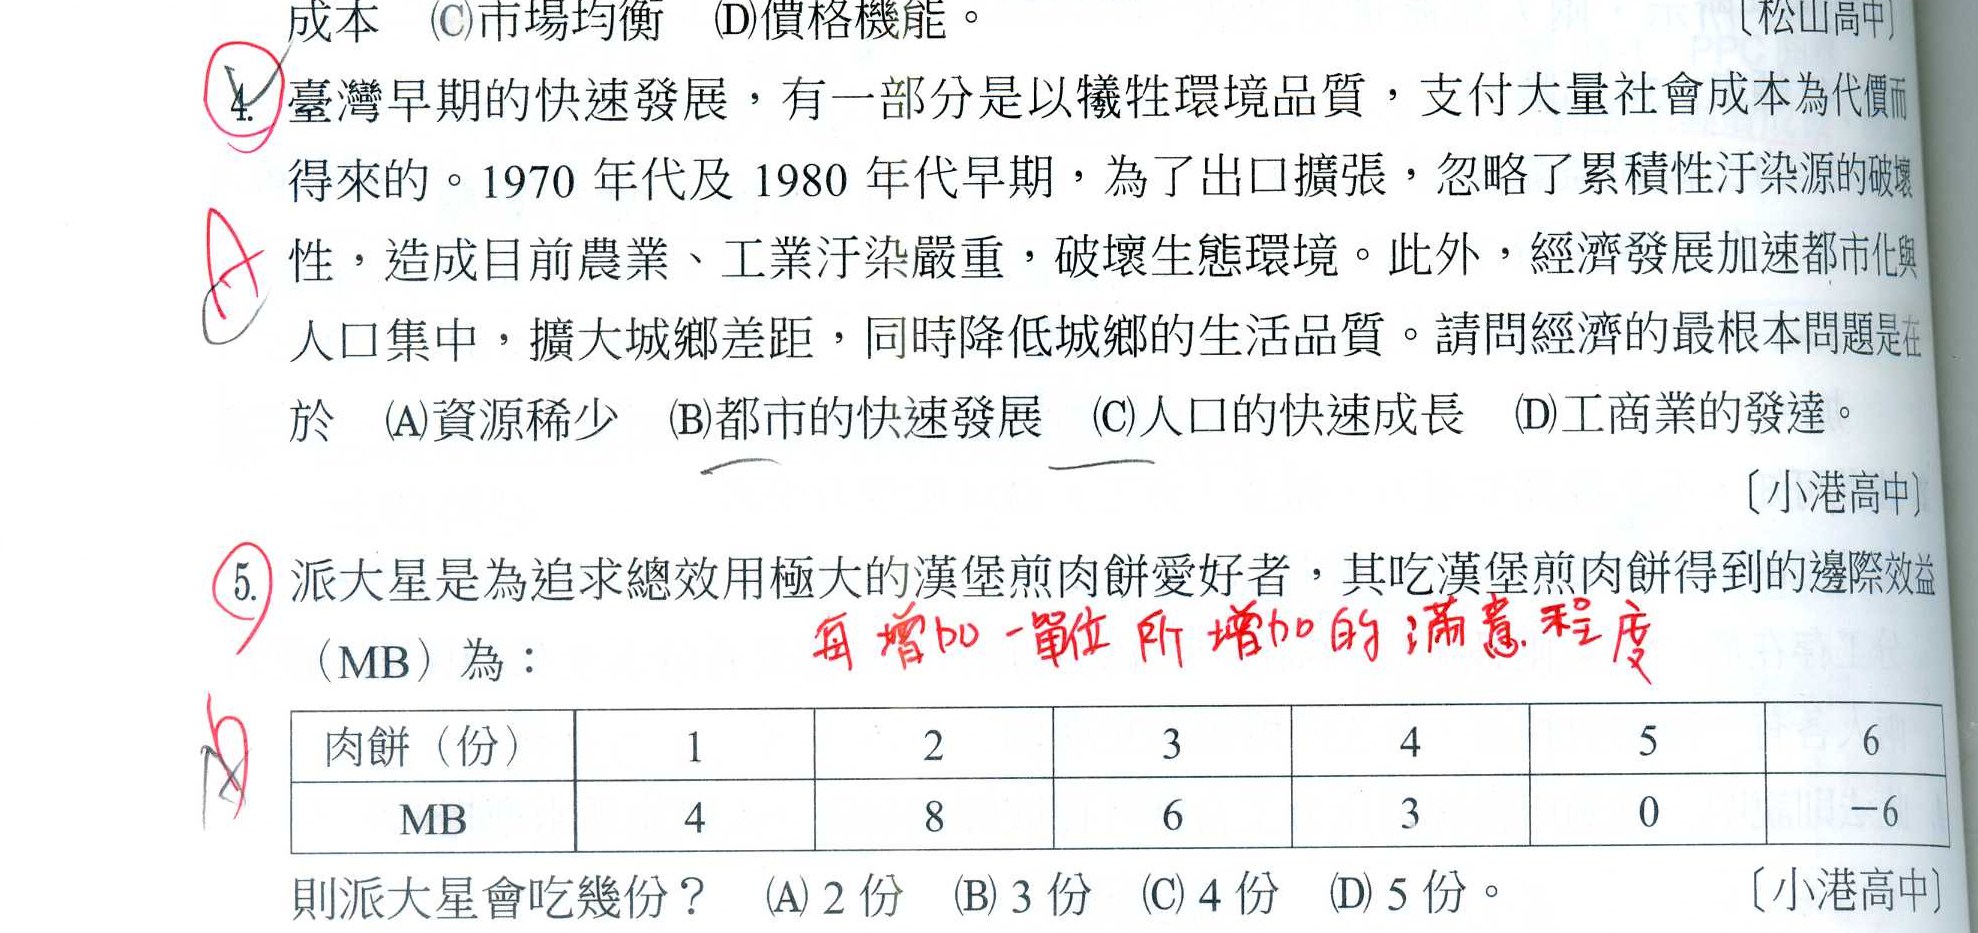 成本　(C)市場均衡　(D)價格機能。
〔松山高中〕
4.臺灣早期的快速發展，有一部分是以犧牲環境品質，支付大量社會成本為代價而
得來的。1970 年代及 1980 年代早期，為了出口擴張，忽略了累積性汙染源的破壞
性，造成目前農業、工業汙染嚴重，破壞生態環境。此外，經濟發展加速都市化與
A
C
人口集中，擴大城鄉差距，同時降低城鄉的生活品質。請問經濟的最根本問題是在
於　(A)資源稀少　(B)都市的快速發展　(C)人口的快速成長　(D)工商業的發達。
〔小港高中〕
5.派大星是為追求總效用極大的漢堡煎肉餅愛好者，其吃漢堡煎肉餅得到的邊際效益
每增加一單位所增加的滿意程度
（MB）為：
D
肉餅（份） 1 2 3 4 5 6
MB 4 8 6 3 0 −6
則派大星會吃幾份？　(A) 2 份　(B) 3 份　(C) 4 份　(D) 5 份。
〔小港高中〕